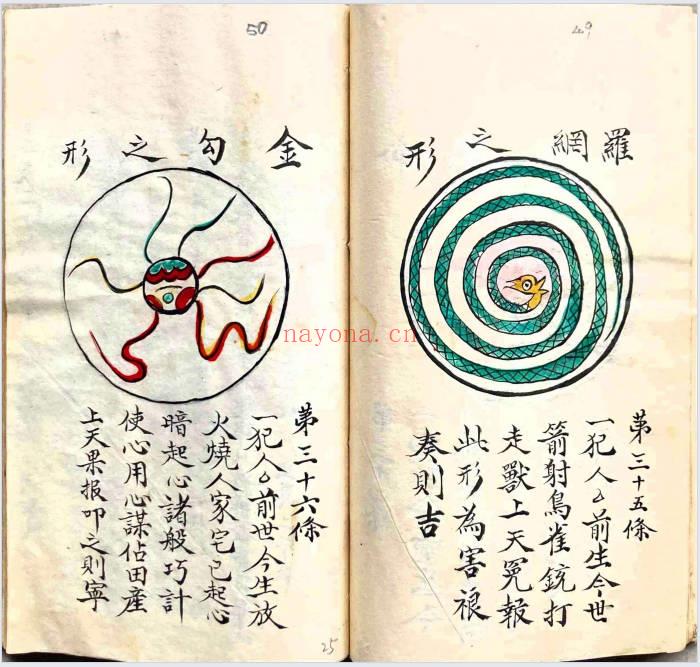 49
羅網之形
第三十五條
一犯人厶前生今世
箭射鳥雀銃打
走獸上天冤報
此形為害禳
奏則吉
50
金勾之形
第三十六條
一犯人厶前世今生放
火燒人家宅已起心
暗起心諸般巧計
使心用心謀佔田產
上天果报叩之則寧
25
nayona.cn